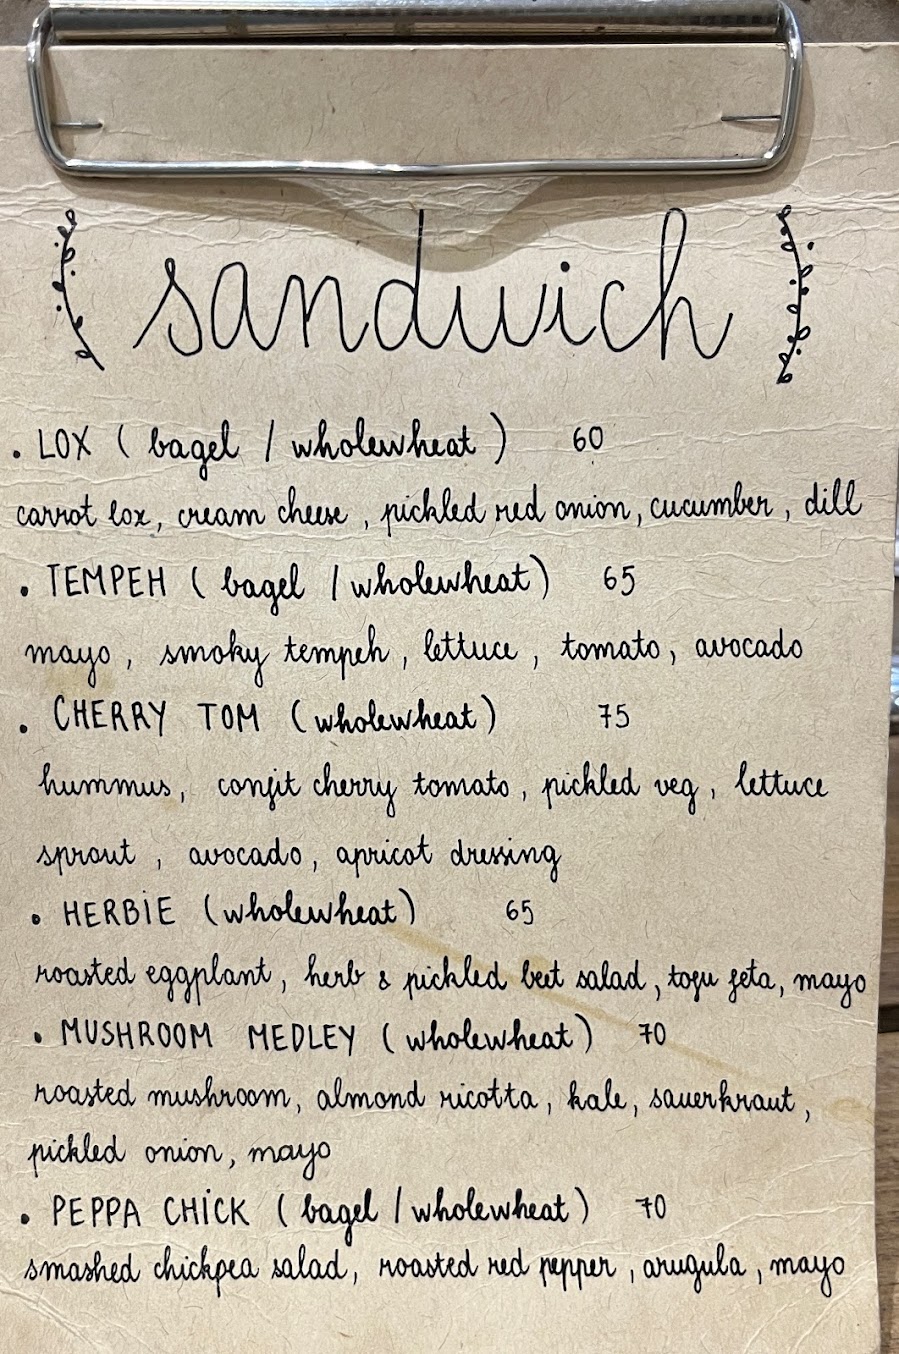 sandwich
• LOX ( bagel / wholewheat ) 60
carrot lox, cream cheese, pickled red onion, cucumber, dill
• TEMPEH ( bagel / wholewheat ) 65
mayo, smoky tempeh, lettuce, tomato, avocado
• CHERRY TOM (wholewheat) 75
hummus, confit cherry tomato, pickled veg, lettuce
sprout, avocado, apricot dressing
• HERBiE (wholewheat) 65
roasted eggplant, herb & pickled beet salad, tofu feta, mayo
• MUSHROOM MEDLEY (wholewheat) 70
roasted mushroom, almond ricotta, kale, sauerkraut,
pickled onion, mayo
• PEPPA CHiCK ( bagel / wholewheat ) 70
smashed chickpea salad, roasted red pepper, arugula, mayo